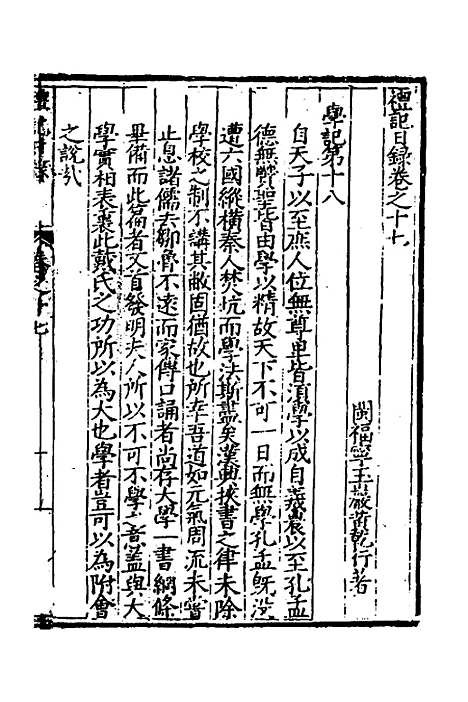 禮記日錄卷之十七
閩福寧王 乾行著
學記第十八
自天子以至庶人位無尊卑皆須學以成自羲農以至孔孟
德無賢聖皆由學以精故天下不可一日而無學孔孟旣沒
遭六國縱橫秦人焚坑而學法斯盡矣漢興挾書之律未除
學校之制不講其敝固猶故也所幸吾道如元氣周流未嘗
止息諸儒去鄒魯不遠而家傳口誦者尚存大學一書綱條
畢備而此篇者文首發明夫人所以不可不學之意蓋與大
學實相表裏此戴氏之功所以為大也學者豈可以為附會
之說哉
禮記日錄 卷之十七